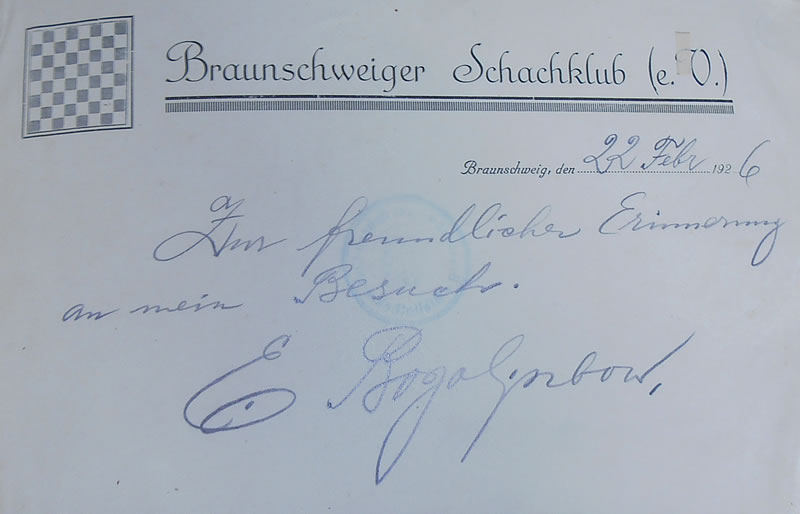 Braunschweiger Schachklub (e. V.)
Braunschweig, den 22 Febr 1926
Zur freundlicher Erinnerung
an mein Besuch.
E Bogoljubow,